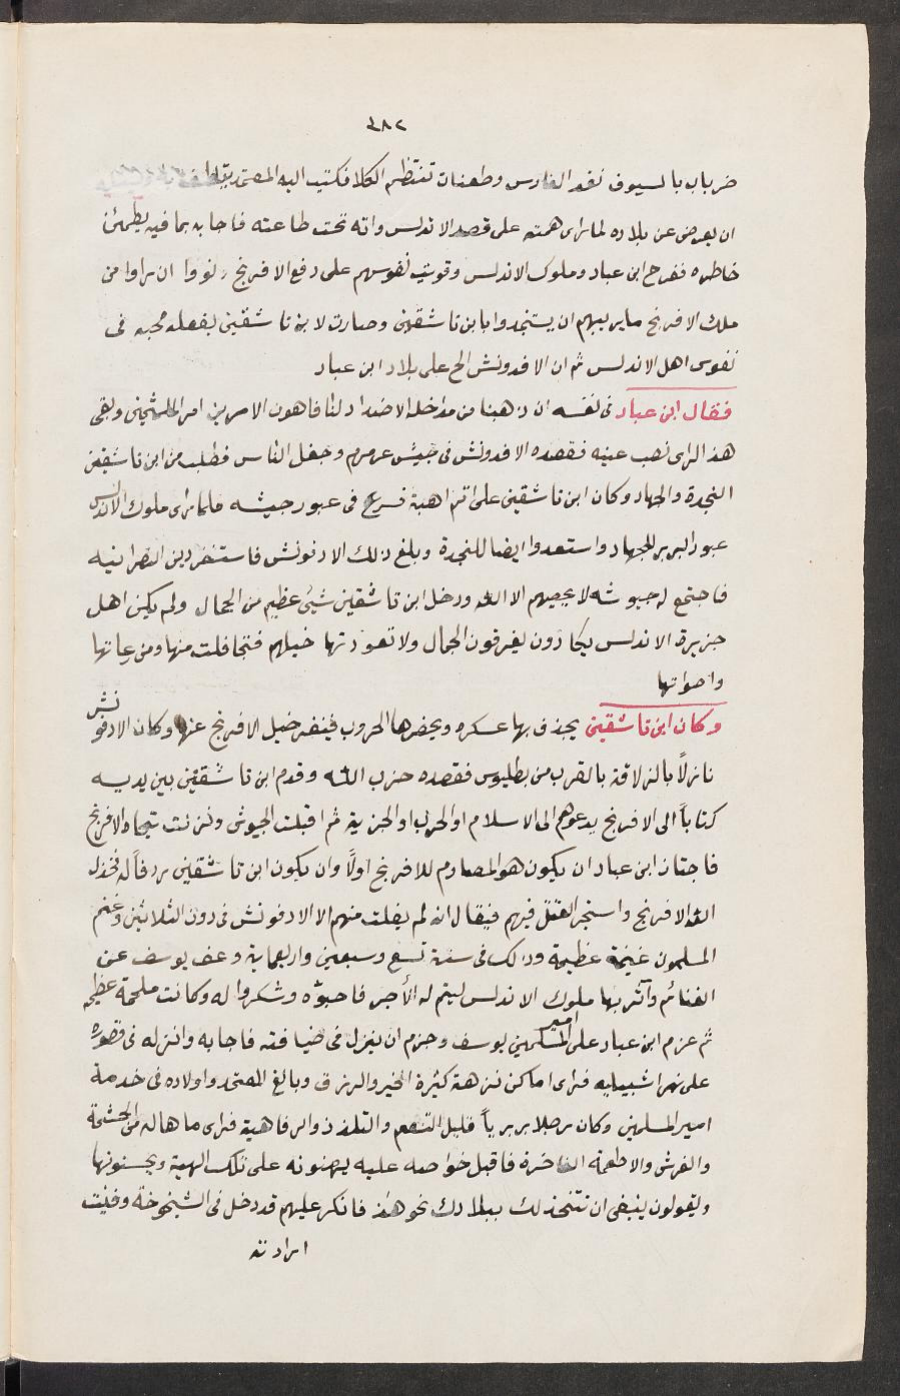 ٤٨٢
ضربات بالسيوف تقد الفارس وطعنات تنتظم الكلا فكتب اليه المعتمد
ان يعرض عن بلاده لما راى همته على قصد الاندلس وانه تحت طاعته فاجابه بما فيه يطمئن
خاطره ففرح ابن عباد وملوك الاندلس وقويت نفوسهم على دفع الافرنج ونووا ان راوا من
ملك الافرنج ما يريبهم ان يستنجدوا بابن تاشقين وصارت لابن تاشقين بفعله محبه فى
نفوس اهل الاندلس ثم ان الادفونش الح على بلاد ابن عباد
فقال ابن عباد فى نفسه ان دهينا من مداخلة الاضداد لنا فاهون الامرين امر الملثمين وبقى
هذا الراى نصب عينه فقصده الادفونش فى جيش عرمرم وجفل الناس فطلب من ابن تاشقين
النجدة والجهاد وكان ابن تاشقين على اتم اهبة فسرع فى عبور جيشه فلما راى ملوك الاندلس
عبور البربر للجهاد واستعدوا ايضا للنجدة وبلغ ذلك الادفونش فاستنفر دين النصرانيه
فاجتمع له جيوشه لا يحصيهم الا الله ودخل ابن تاشقين شيئ عظيم من الجمال ولم يكن اهل
جزيرة الاندلس يكادون يعرفون الجمال ولا تعودتها خيلهم فتجافلت منها ومن رغاتها
واصواتها
وكان ابن تاشقين يحذف بها عسكره ويحضرها الحروب فينفر خيل الافرنج عنها وكان الادفونش
نازلاً بالزلاقة بالقرب من بطليوس فقصده حزب الله وقدم ابن تاشقين بين يديه
كتاباً الى الافرنج يدعوهم الى الاسلام او الحرب او الجزية ثم اقبلت الجيوش ونزلت تجاه الافرنج
فاختار ابن عباد ان يكون هو المصادم للافرنج اولاً وان يكون ابن تاشقين ردفاً له فخذل
الله الافرنج واستحر القتل فيهم فيقال انه لم يفلت منهم الا الادفونش فى دون الثلاثين وغنم
المسلمون غنيمة عظيمة وذلك فى سنة تسع وسبعين واربعماية وعف يوسف عن
الغنائم وآثر بها ملوك الاندلس ليتم له الأجر فاحبوه وشكروا له وكانت ملحمة عظيمه
ثم عزم ابن عباد على امير المسلمين يوسف وحزم ان ينزل فى ضيافته فاجابه وانزله فى قصوره
على نهر اشبيليه فراى اماكن نزهة كثيرة الخير والرزق وبالغ المعتمد واولاده فى خدمة
امير المسلمين وكان رجلا بربرياً قليل التنعم والتلذذ والرفاهية فراى ما هاله من الحشمة
والفرش والاطعمة الفاخرة فاقبل خواصه عليه ينبهونه على تلك الهيئة ويحسنونها
ويقولون ينبغى ان تتخذ لك ببلادك نحو هذا فانكر عليهم قد دخل فى الشيخوخة وفنيت
ارادته